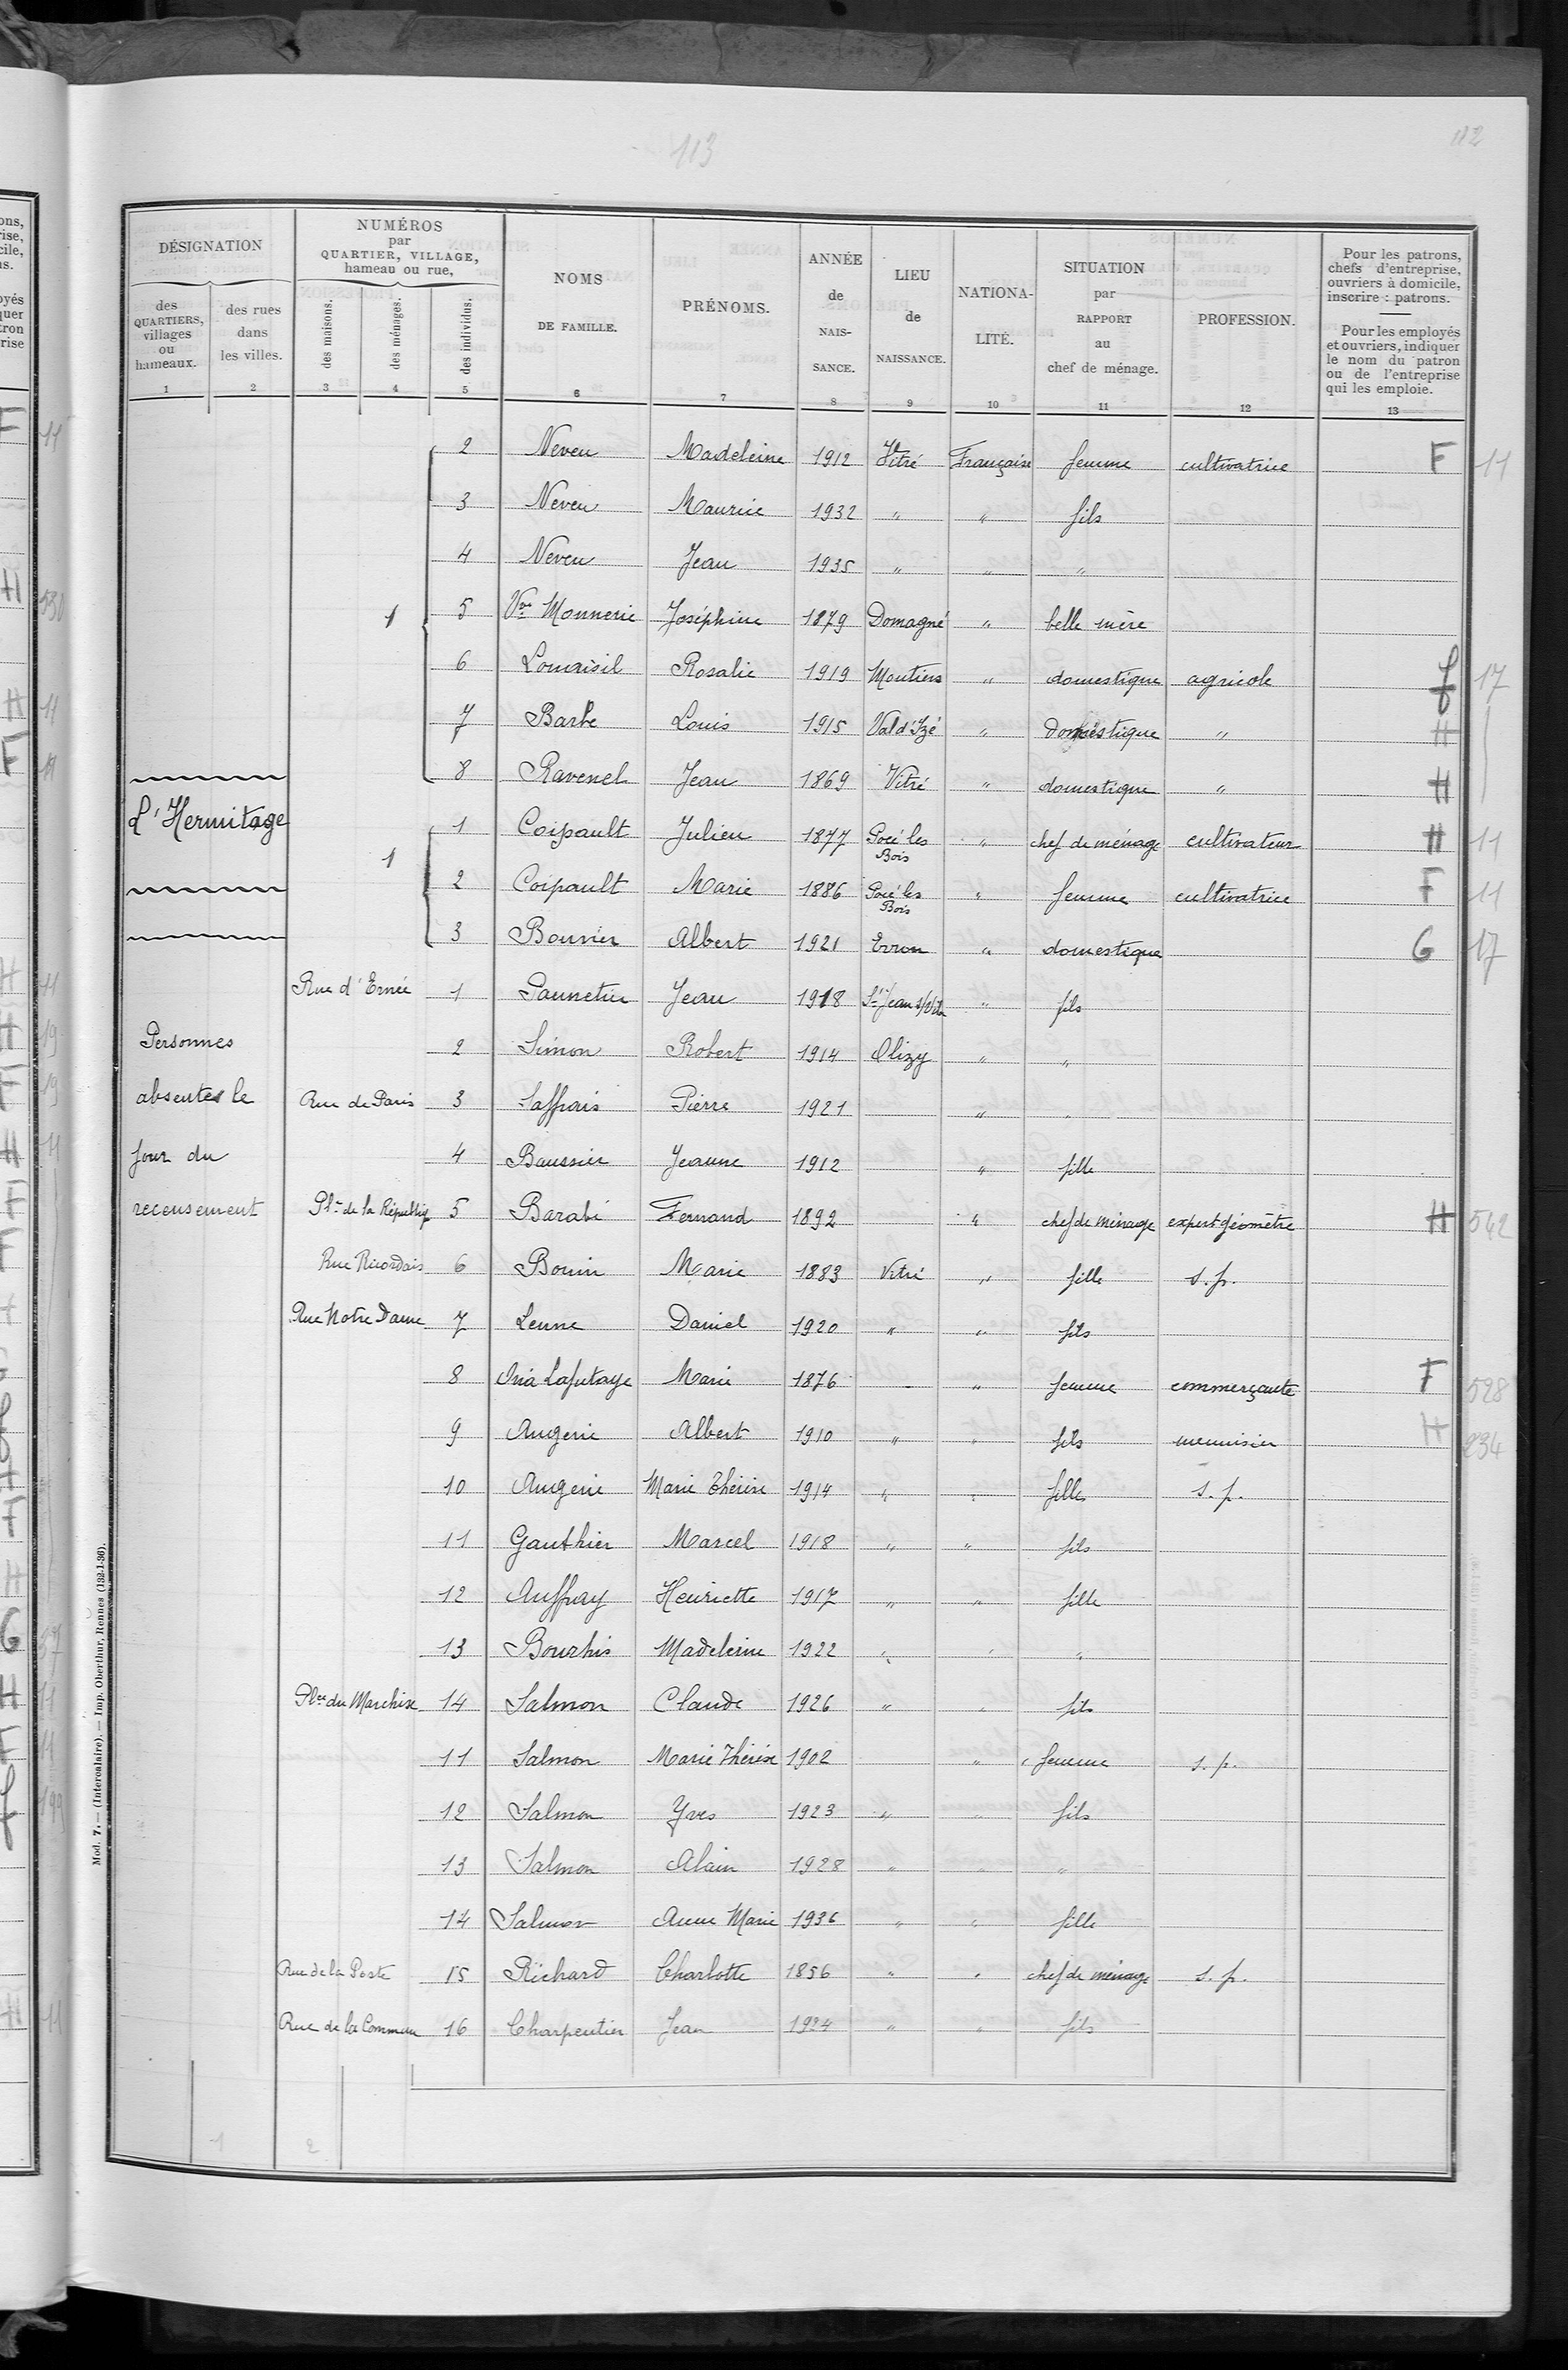 113
112
DÉSIGNATION
NUMÉROS
par
QUARTIER, VILLAGE,
hameau ou rue,
des
QUARTIERS,
villages
ou
hameaux.
des rues
dans
les villes.
des maisons.
des ménages.
des individus.
NOMS
DE FAMILLE.
PRÉNOMS.
ANNÉE
de
NAIS-
SANCE.
LIEU
de
NAISSANCE.
NATIONA-
LITÉ.
SITUATION
par
RAPPORT
au
chef de ménage.
PROFESSION.
Pour les patrons,
chefs d'entreprise,
ouvriers à domicile,
inscrire : patrons.
Pour les employés
et ouvriers, indiquer
le nom du patron
ou de l'entreprise
qui les emploie.
1 2 3 4 5 6 7 8 9 10 11 12 13
2 Neveu Madeleine 1912 Vitré Française femme cultivatrice F 11
3 Neveu Maurice 1932 " " fils
4 Neveu Jean 1935 " " "
1 5 Vve Monnerie Joséphine 1879 Domagné " belle mère
6 Rosalie 1919 Moutiers " domestique agricole f 17
7 Barbe Louis 1915 Val d'Izé " domestique " H
8 Ravenel Jean 1869 Vitré " domestique " H
L'Hermitage 1 1 Coipault Julien 1877 Pocé les Bois " chef de ménage cultivateur H 11
2 Coipault Marie 1886 Pocé les Bois " femme cultivatrice F 11
3 Bouvier Albert 1921 Evron " domestique G 17
Rue d'Ernée 1 Pannetier Jean 1918 St Jean s/Vil. " fils
Personnes 2 Simon Robert 1914 Olizy " "
absentes le Rue de Paris 3 Saffrais Pierre 1921 " "
jour du 4 Baussier Jeanne 1912 " fille
recensement Pl. de la Républiq 5 Barabé Fernand 1892 " chef de ménage expert géomètre H 542
Rue Ricordais 6 Bouin Marie 1883 Vitré " fille s.p.
Rue Notre Dame 7 Lenne Daniel 1920 " " fils
8 Marie 1876 " femme commerçante F 528
9 Augerie Albert 1910 " " fils menuisier H 234
10 Augerie Marie Thérèse 1914 " " fille s.p.
11 Gauthier Marcel 1918 " " fils
12 Auffray Henriette 1917 " " fille
13 Bourhis Madeleine 1922 " " "
Plce du Marchix 14 Salmon Claude 1926 " " fils
11 Salmon Marie Thérèse 1902 " femme s.p.
12 Salmon Yves 1923 " " fils
13 Salmon Alain 1928 " " "
14 Salmon Anne Marie 1936 " " fille
Rue de la Poste 15 Richard Charlotte 1856 " " chef de ménage s.p.
Rue de la Commun 16 Charpentier Jean 1924 " " fils
1 2
Mod. 7. — (Intercalaire). — Imp. Oberthur, Rennes (132-1-36).